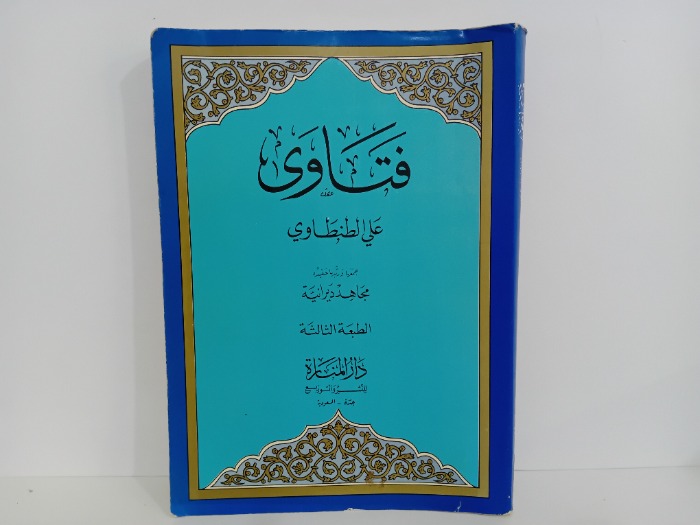 فتاوى
علي الطنطاوي
جمعها ورتبها حفيده
مجاهد ديرانية
الطبعة الثالثة
دار المنارة
للنشر والتوزيع
جدة - السعودية